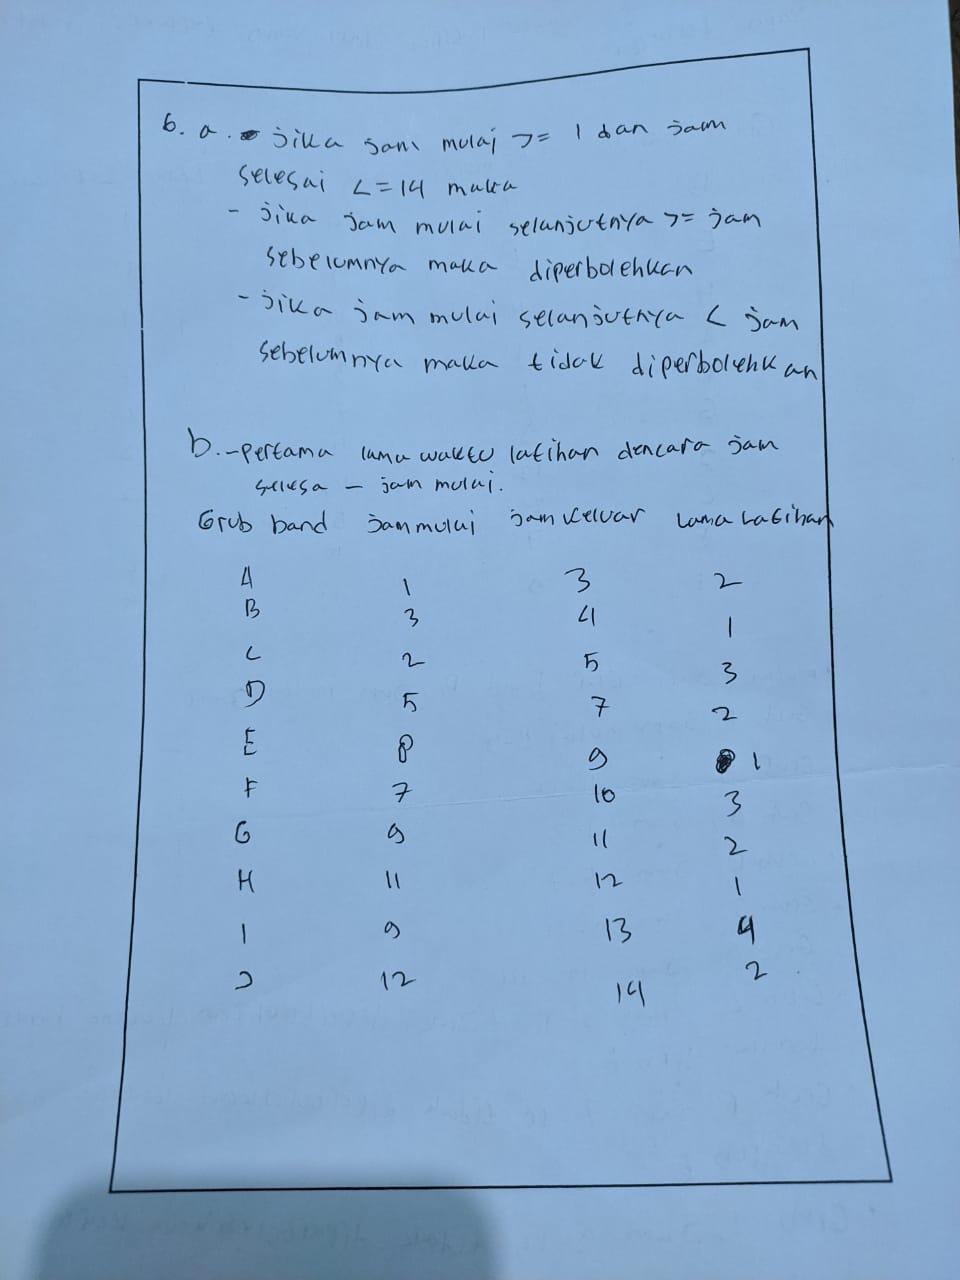 6. a. jika jam mulai >= 1 dan jam
selesai <=14 maka
- jika jam mulai selanjutnya >= jam
sebelumnya maka diperbolehkan
- jika jam mulai selanjutnya < jam
sebelumnya maka tidak diperbolehkan
b. -pertama lama waktu latihan dencara jam
selesa - jam mulai.
Grub band jam mulai jam keluar Lama Latihan
A 1 3 2
B 3 4 1
C 2 5 3
D 5 7 2
E 8 9 1
F 7 10 3
G 9 11 2
H 11 12 1
I 9 13 4
J 12 14 2